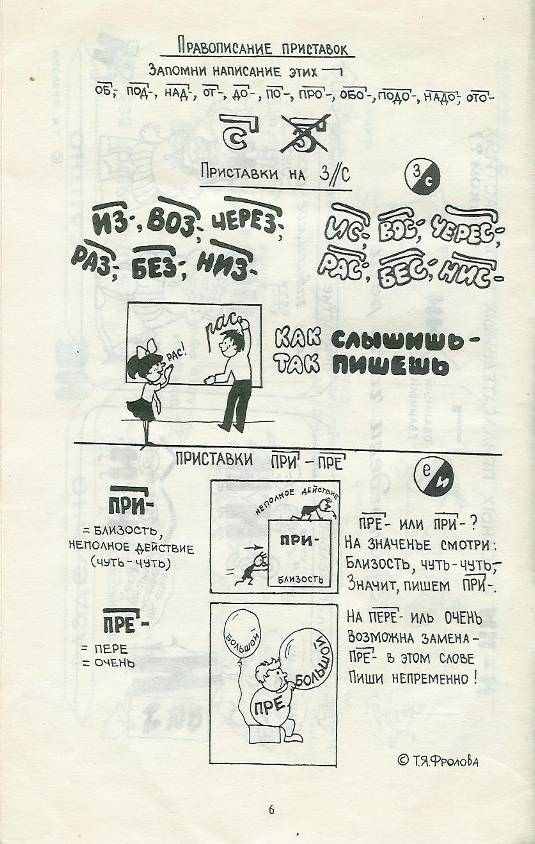 ПРАВОПИСАНИЕ ПРИСТАВОК
ЗАПОМНИ НАПИСАНИЕ ЭТИХ
ОБ-, ПОД-, НАД-, ОТ-, ДО-, ПО-, ПРО-, ОБО-, ПОДО-, НАДО-, ОТО-
С З
ПРИСТАВКИ НА З//С
З С
ИЗ-, ВОЗ-, ЧЕРЕЗ-,
РАЗ-, БЕЗ-, НИЗ-
ИС-, ВОС-, ЧЕРЕС-,
РАС-, БЕС-, НИС-
рас
РАС!
КАК СЛЫШИШЬ-
ТАК ПИШЕШЬ
ПРИСТАВКИ ПРИ - ПРЕ
е и
ПРИ-
= БЛИЗОСТЬ,
НЕПОЛНОЕ ДЕЙСТВИЕ
(ЧУТЬ-ЧУТЬ)
НЕПОЛНОЕ ДЕЙСТВИЕ
ПРИ-
БЛИЗОСТЬ
ПРЕ- ИЛИ ПРИ-?
НА ЗНАЧЕНЬЕ СМОТРИ:
БЛИЗОСТЬ, ЧУТЬ-ЧУТЬ,-
ЗНАЧИТ, ПИШЕМ ПРИ-.
ПРЕ-
= ПЕРЕ
= ОЧЕНЬ
БОЛЬШОЙ
БОЛЬШОЙ
ПРЕ
НА ПЕРЕ- ИЛЬ ОЧЕНЬ
ВОЗМОЖНА ЗАМЕНА-
ПРЕ- В ЭТОМ СЛОВЕ
ПИШИ НЕПРЕМЕННО!
© Т.Я.ФРОЛОВА
6